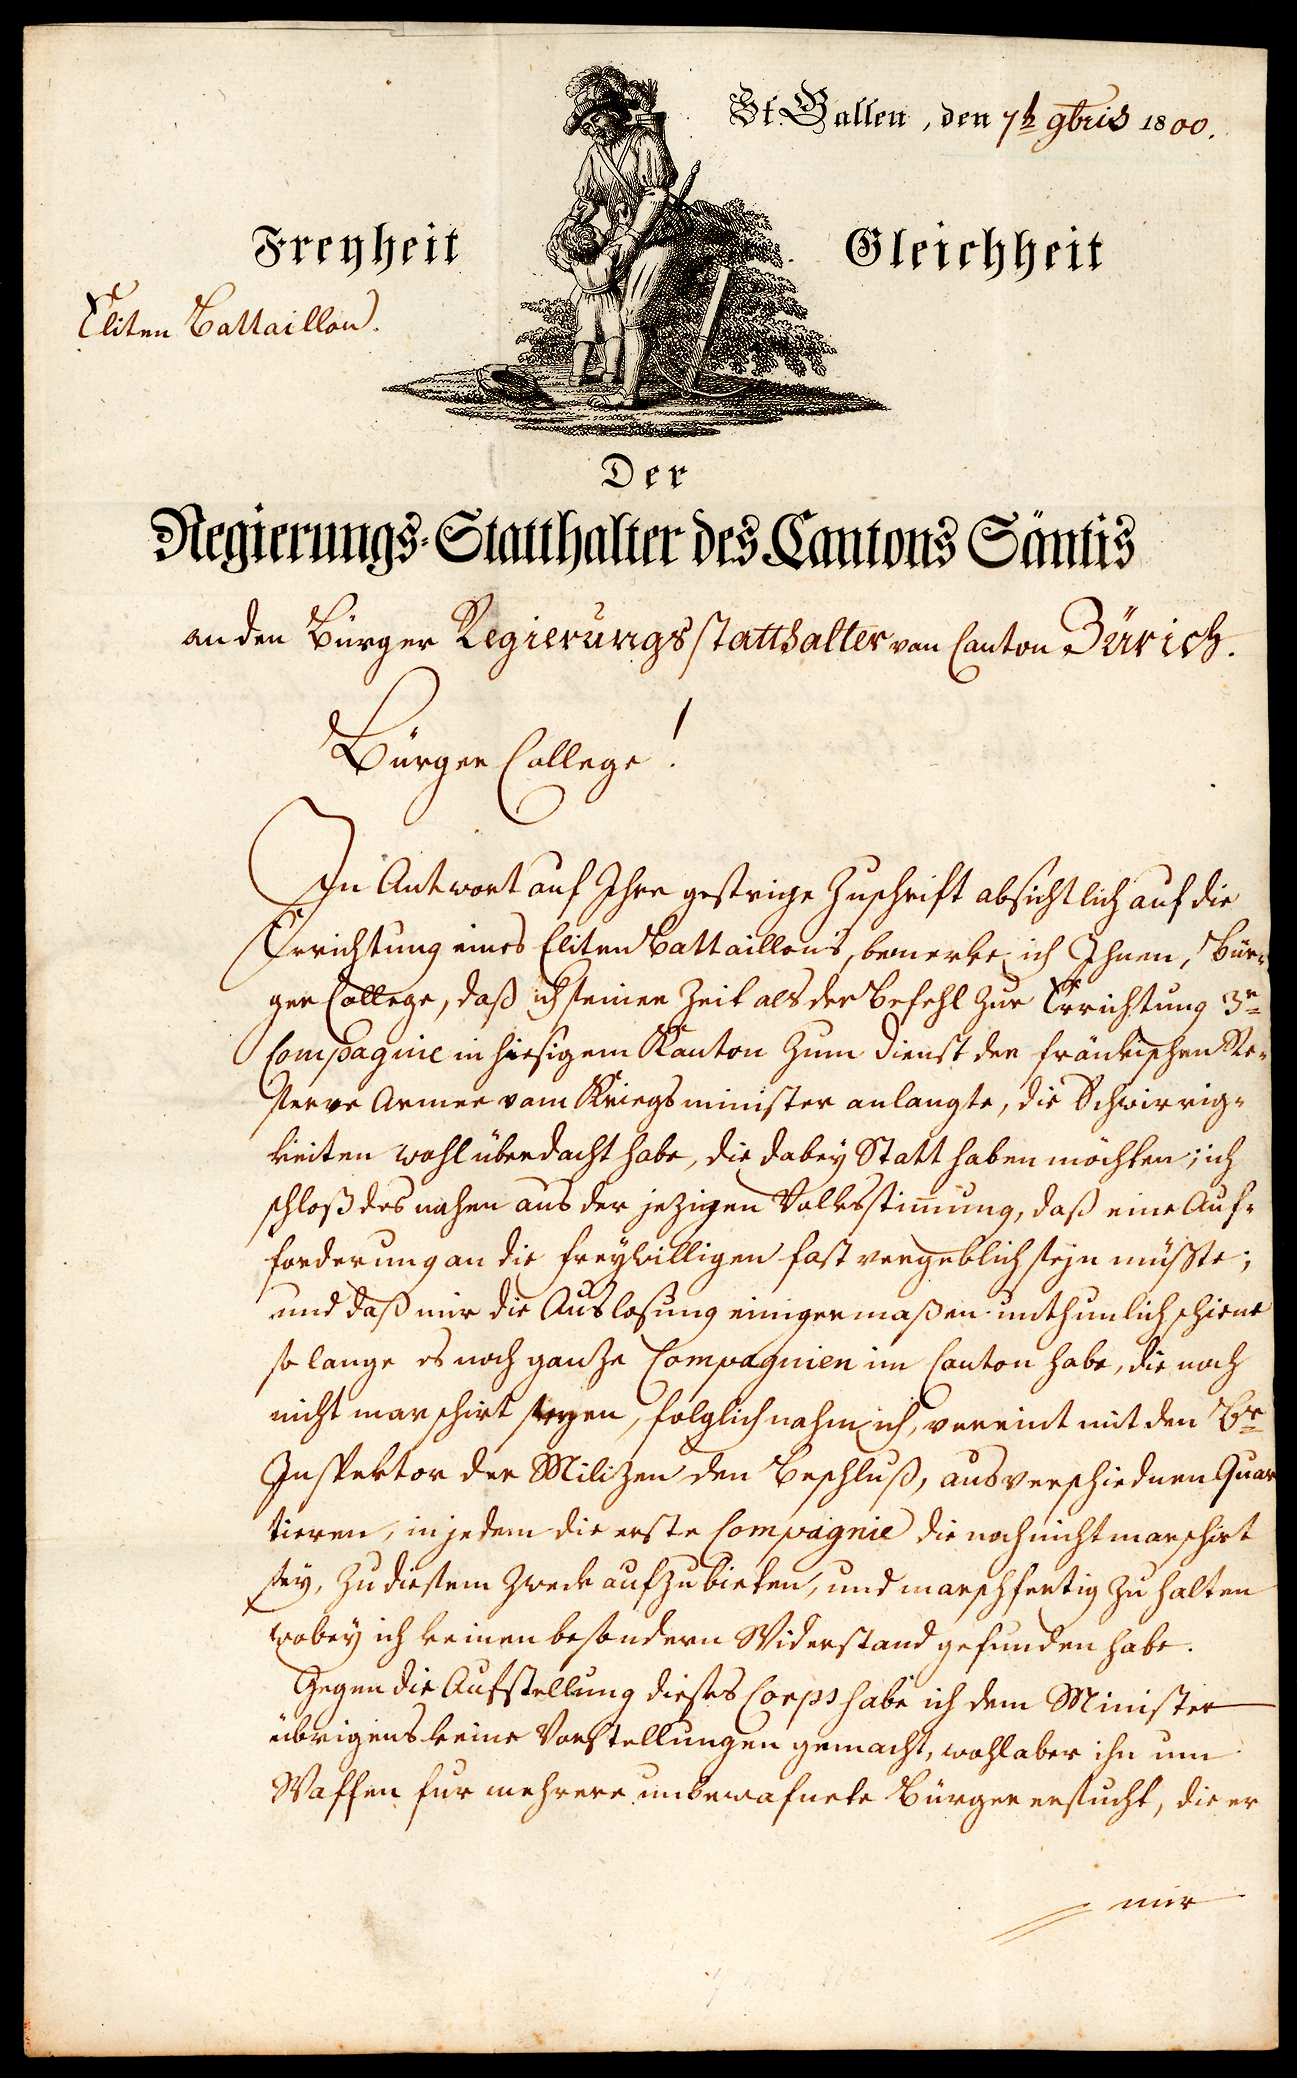 St. Gallen, den 7t 9bris 1800.
Freyheit Gleichheit
Eliten Battaillon.
Der
Regierungs-Statthalter des Cantons Säntis
an den Bürger Regierungsstatthalter von Canton Zürich.
Bürger College!
In Antwort auf Ihre gestrige Zuschrift absichtlich auf die
Errichtung eines Eliten Battaillons, bemerke ich Ihnen, Bür-
ger College, daß ich seiner Zeit als der Befehl zur Errichtung 3r
Compagnie in hiesigem Kanton zum Dienst der fränkischen Re-
serve Armee vom Kriegsminister anlangte, die Schwirrig-
keiten wohl überdacht habe, die dabey Statt haben möchten; ich
schloß des nahen aus der jezigen Volksstimmung, daß eine Auf-
forderung an die freywilligen fast vergeblich seyn müßte;
und daß mir die Auslosung einigermaßen unthunlich schiene
so lange es noch ganze Compagnien im Canton habe, die noch
nicht marschirt seyen, folglich nahm ich, vereint mit den Br
Inspektor der Milizen den Beschluß, aus verschiednen Quar
tieren, in jedem die erste Compagnie die noch nicht marschirt
sey, zu diesem Zweck aufzubieten, und marschfertig zu halten
wobey ich keinen besondern Widerstand gefunden habe.
Gegen die Aufstellung dieses Corps habe ich dem Minister
übrigens keine Vorstellungen gemacht, wohl aber ihn um
Waffen für mehrere unbewafnete Bürger ersucht, die er
mir